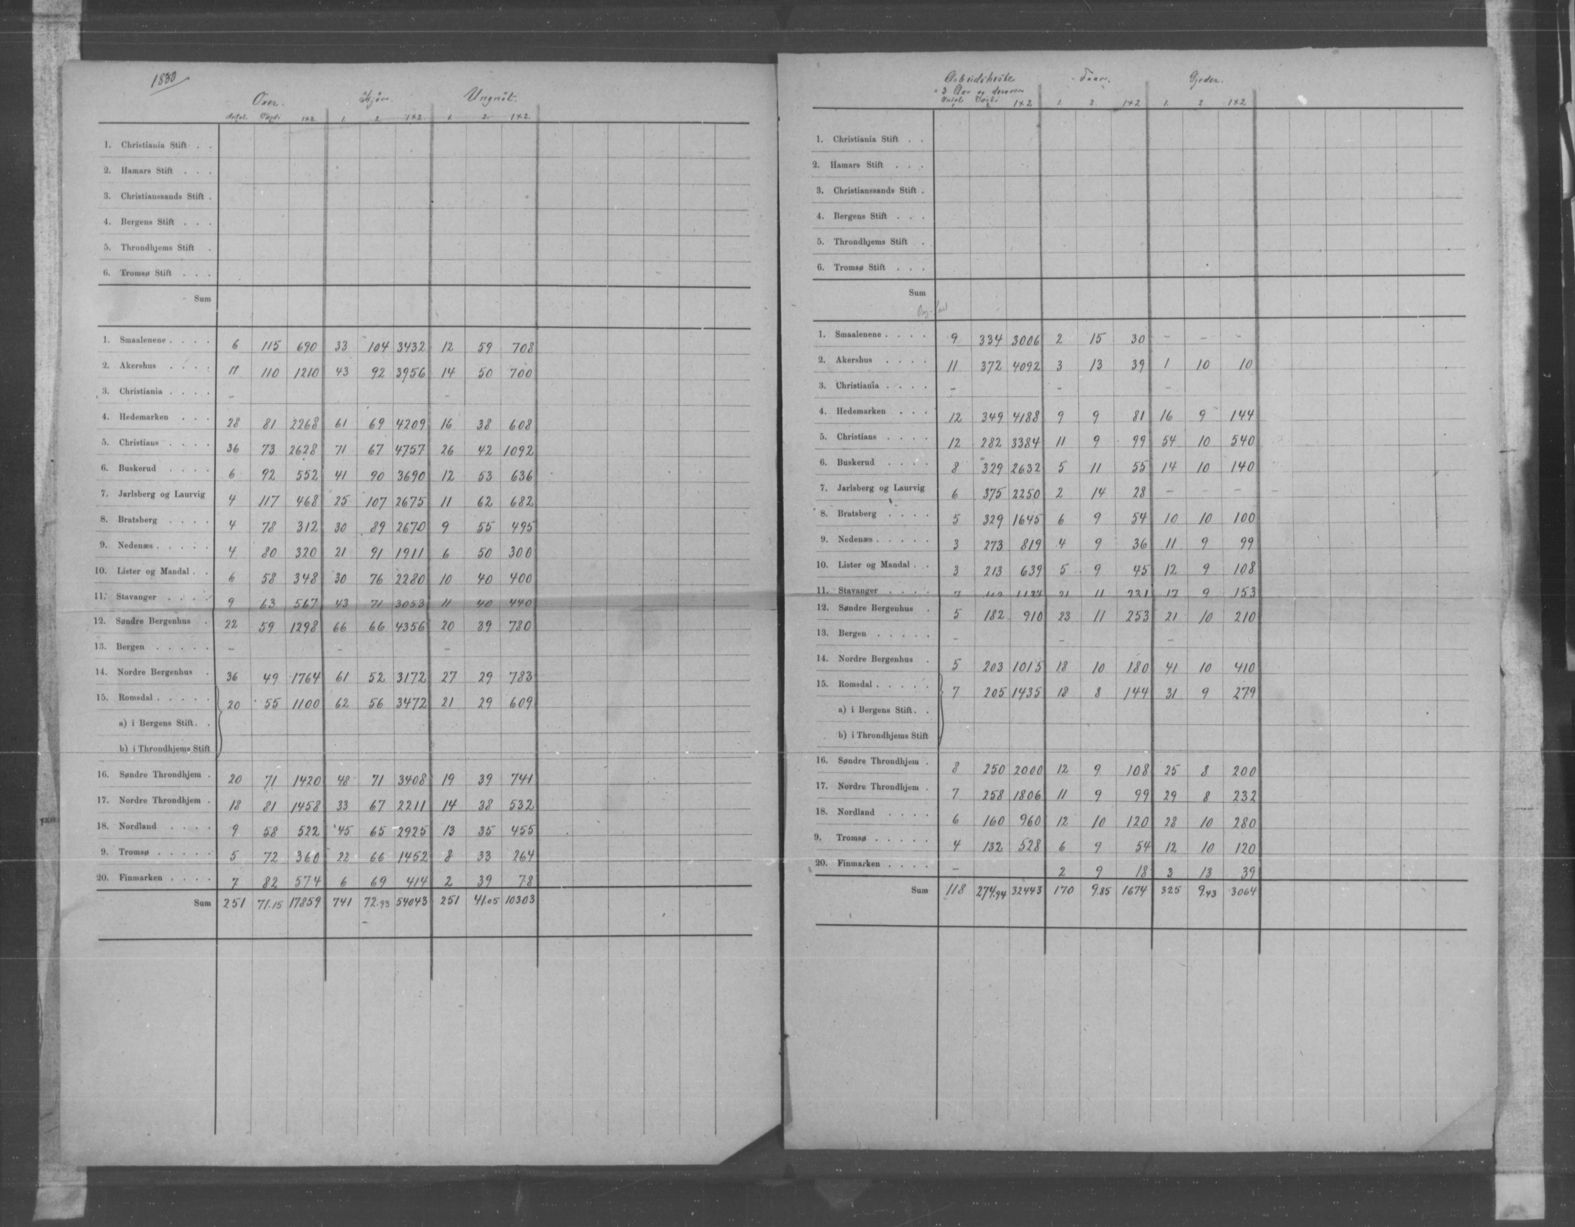 1880
Oxer. Kjör. Ungnöt.
Antal Vægt 1×2 1. 2. 1×2 1. 2. 1×2
1. Christiania Stift . .
2. Hamars Stift . . .
3. Christianssands Stift .
4. Bergens Stift . . .
5. Throndhjems Stift .
6. Tromsø Stift . . .
Sum
1. Smaalenene . . . . 6 115 690 33 104 3432 12 59 708
2. Akershus . . . . 11 110 1210 43 92 3956 14 50 700
3. Christiania . . . . – –
4. Hedemarken . . . 28 81 2268 61 69 4209 16 38 608
5. Christians . . . . 36 73 2628 71 67 4757 26 42 1092
6. Buskerud . . . . 6 92 552 41 90 3690 12 53 636
7. Jarlsberg og Laurvig 4 117 468 25 107 2675 11 62 682
8. Bratsberg . . . . 4 78 312 30 89 2670 9 55 495
9. Nedenæs . . . . . 4 80 320 21 91 1911 6 50 300
10. Lister og Mandal . . 6 58 348 30 76 2280 10 40 400
11. Stavanger . . . . 9 63 567 43 71 3053 11 40 440
12. Søndre Bergenhus . 22 59 1298 66 66 4356 20 39 780
13. Bergen . . . . . – – –
14. Nordre Bergenhus . 36 49 1764 61 52 3172 27 29 783
15. Romsdal . . . . . 20 55 1100 62 56 3472 21 29 609
a) i Bergens Stift . .
b) i Throndhjems Stift
16. Søndre Throndhjem . 20 71 1420 48 71 3408 19 39 741
17. Nordre Throndhjem . 18 81 1458 33 67 2211 14 38 532
18. Nordland . . . . 9 58 522 45 65 2925 13 35 455
9. Tromsø . . . . . 5 72 360 22 66 1452 8 33 264
20. Finmarken . . . . 7 82 574 6 69 414 2 39 78
Sum 251 71.15 17859 741 72.93 54043 251 41.05 10303
Arbeidsheste Faar. Gjeder.
3 Aar og derover
Antal Vægt 1×2 1. 2. 1×2 1. 2 1×2
1. Christiania Stift . .
2. Hamars Stift . . .
3. Christianssands Stift .
4. Bergens Stift . . .
5. Throndhjems Stift .
6. Tromsø Stift . . .
Sum
1. Smaalenene . . . . 9 334 3006 2 15 30 – – –
2. Akershus . . . . 11 372 4092 3 13 39 1 10 10
3. Christiania . . . . – – –
4. Hedemarken . . . 12 349 4188 9 9 81 16 9 144
5. Christians . . . . 12 282 3384 11 9 99 54 10 540
6. Buskerud . . . . 8 329 2632 5 11 55 14 10 140
7. Jarlsberg og Laurvig 6 375 2250 2 14 28 – – – –
8. Bratsberg . . . . 5 329 1645 6 9 54 10 10 100
9. Nedenæs . . . . . 3 273 819 4 9 36 11 9 99
10. Lister og Mandal . . 3 213 639 5 9 45 12 9 108
11. Stavanger . . . . 21 11 231 17 9 153
12. Søndre Bergenhus . 5 182 910 23 11 253 21 10 210
13. Bergen . . . . . – – –
14. Nordre Bergenhus . 5 203 1015 18 10 180 41 10 410
15. Romsdal . . . . . 7 205 1435 18 8 144 31 9 279
a) i Bergens Stift . .
b) i Throndhjems Stift
16. Søndre Throndhjem . 8 250 2000 12 9 108 25 8 200
17. Nordre Throndhjem . 7 258 1806 11 9 99 29 8 232
18. Nordland . . . . 6 160 960 12 10 120 28 10 280
9. Tromsø . . . . . 4 132 528 6 9 54 12 10 120
20. Finmarken . . . . – 2 9 18 3 13 39
Sum 118 274.94 32443 170 9.85 1674 325 9.43 3064